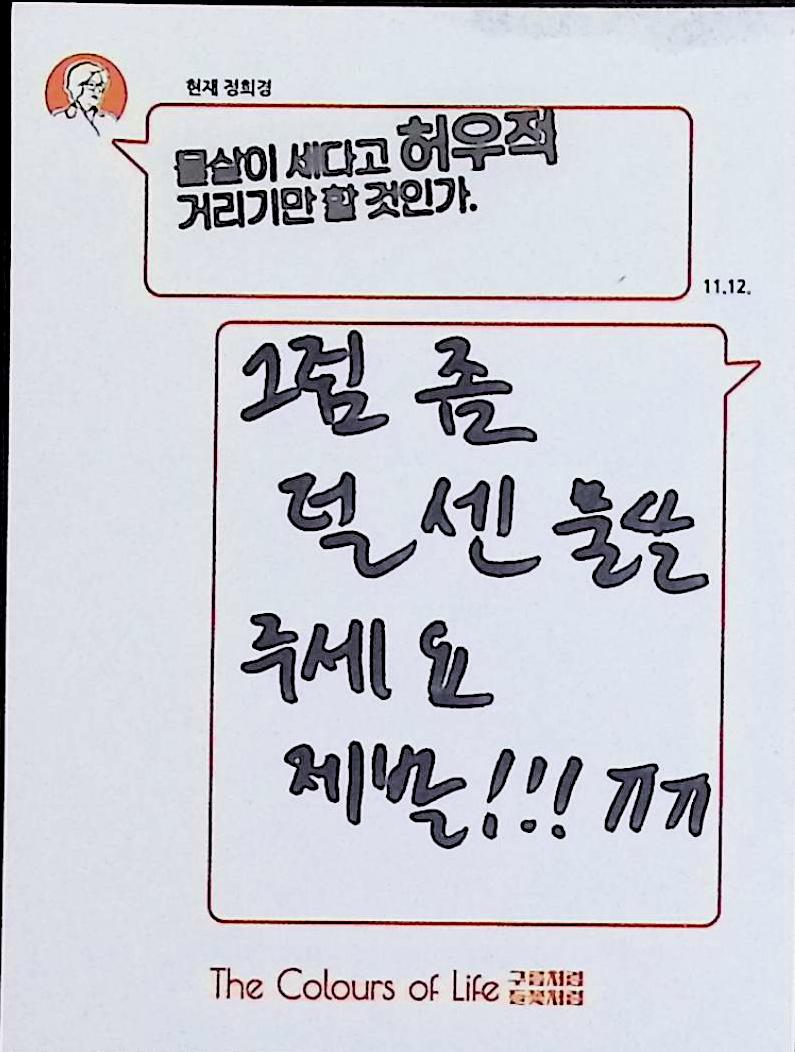 현재 정희경
물살이 세다고 허우적
거리기만 할 것인가.
11.12.
그럼 좀
덜 센 물살
주세요
제발!!! ㅠㅠ
The Colours of Life 구름처럼
들꽃처럼